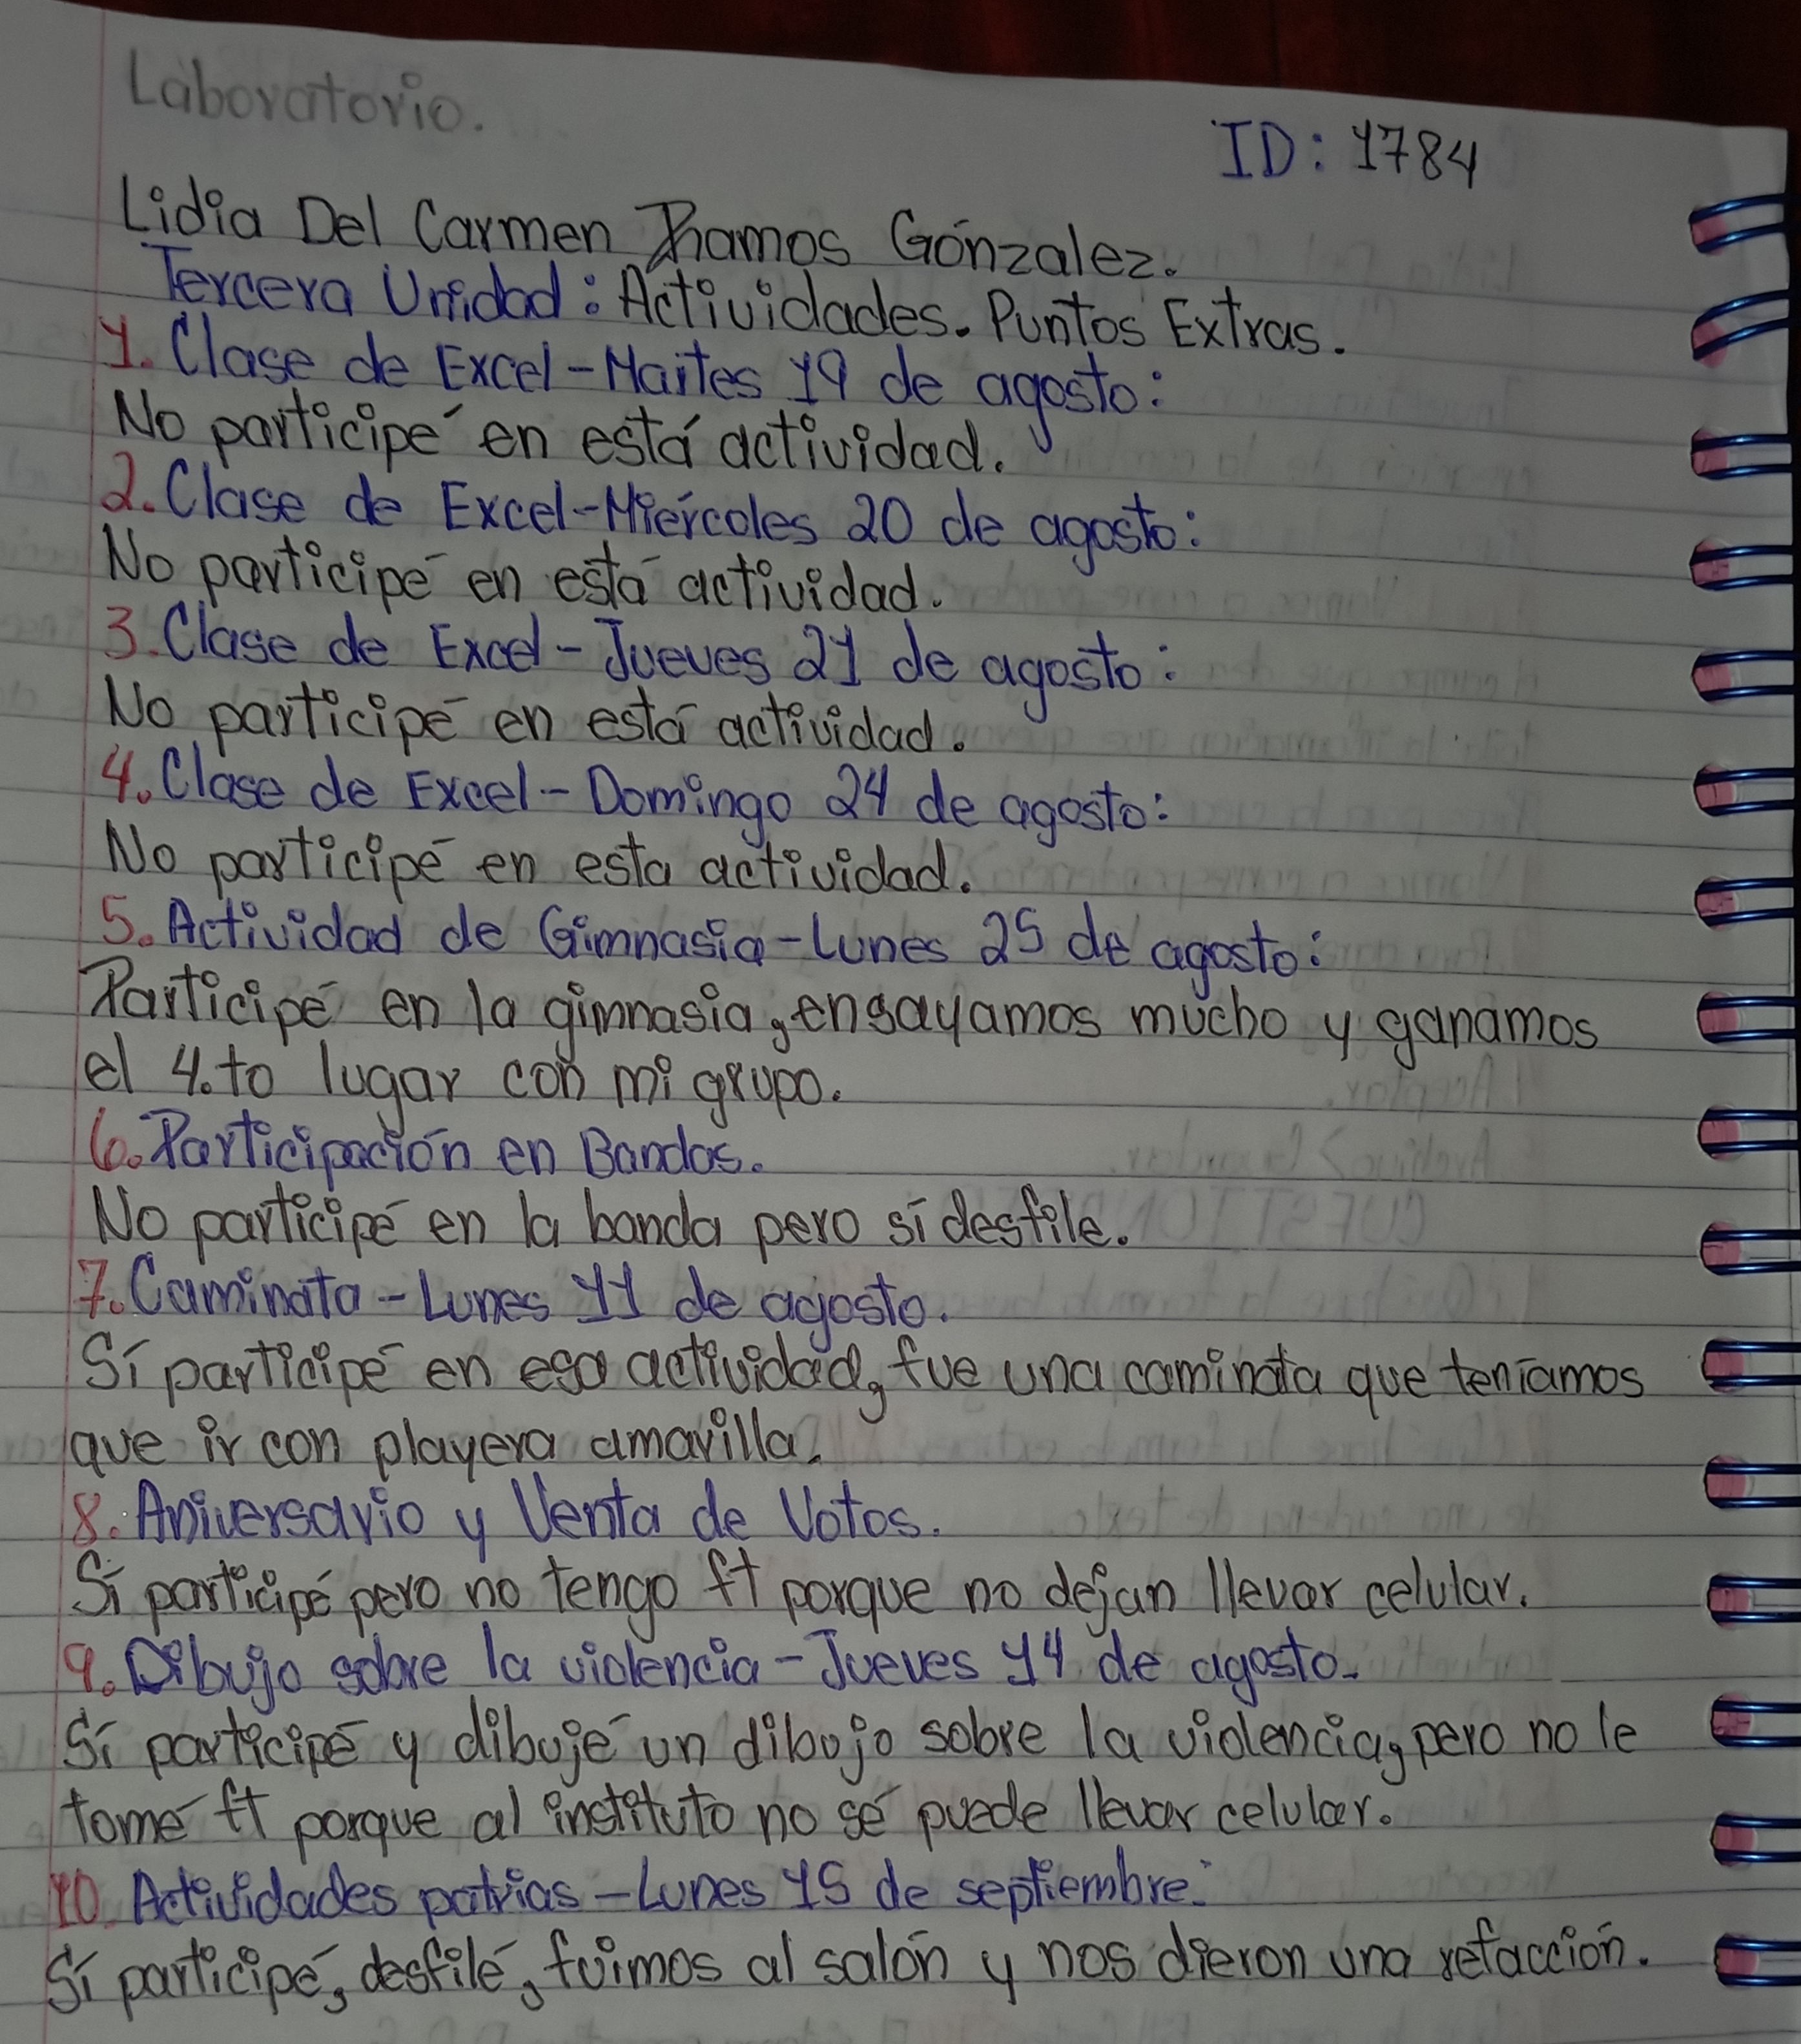 Laboratorio.
ID: 1784
Lidia Del Carmen Ramos Gónzalez.
Tercera Unidad: Actividades. Puntos Extras.
1. Clase de Excel - Martes 19 de agosto:
No participé en está actividad.
2. Clase de Excel - Miércoles 20 de agosto:
No participé en está actividad.
3. Clase de Excel - Jueves 21 de agosto:
No participé en está actividad.
4. Clase de Excel - Domingo 24 de agosto:
No participé en esta actividad.
5. Actividad de Gimnasia - Lunes 25 de agosto:
Participé en la gimnasia, ensayamos mucho y ganamos
el 4.to lugar con mi grupo.
6. Participación en Bandas.
No participé en la banda pero sí desfile.
7. Caminata - Lunes 11 de agosto.
Sí participé en esa actividad, fue una caminata que teníamos
que ir con playera amarilla.
8. Aniversario y Venta de Votos.
Sí participé pero no tengo ft porque no dejan llevar celular.
9. Dibujo sobre la violencia - Jueves 14 de agosto.
Sí participé y dibujé un dibujo sobre la violencia, pero no le
tomé ft porque al instituto no sé puede llevar celular.
10. Actividades patrias - Lunes 15 de septiembre:
Sí participé, desfilé, fuimos al salón y nos dieron una refacción.